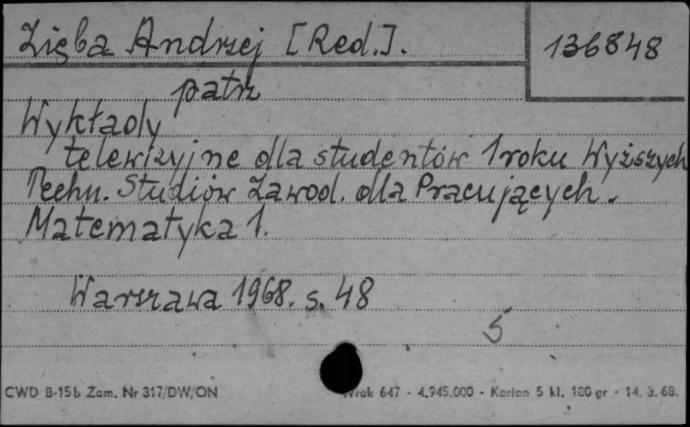 Zięba Andrzej [Red.].
136848
patrz
Wykłady
telewizyjne dla studentów 1 roku Wyższych
Techn. Studiów Zawod. dla Pracujących.
Matematyka 1.
Warszawa 1968. s. 48
5
CWD B-15b Zam. Nr 317/DW/ON
Wrak 647 - 4.945.000 - Karton 5 kl. 180 gr - 14. 3. 68.